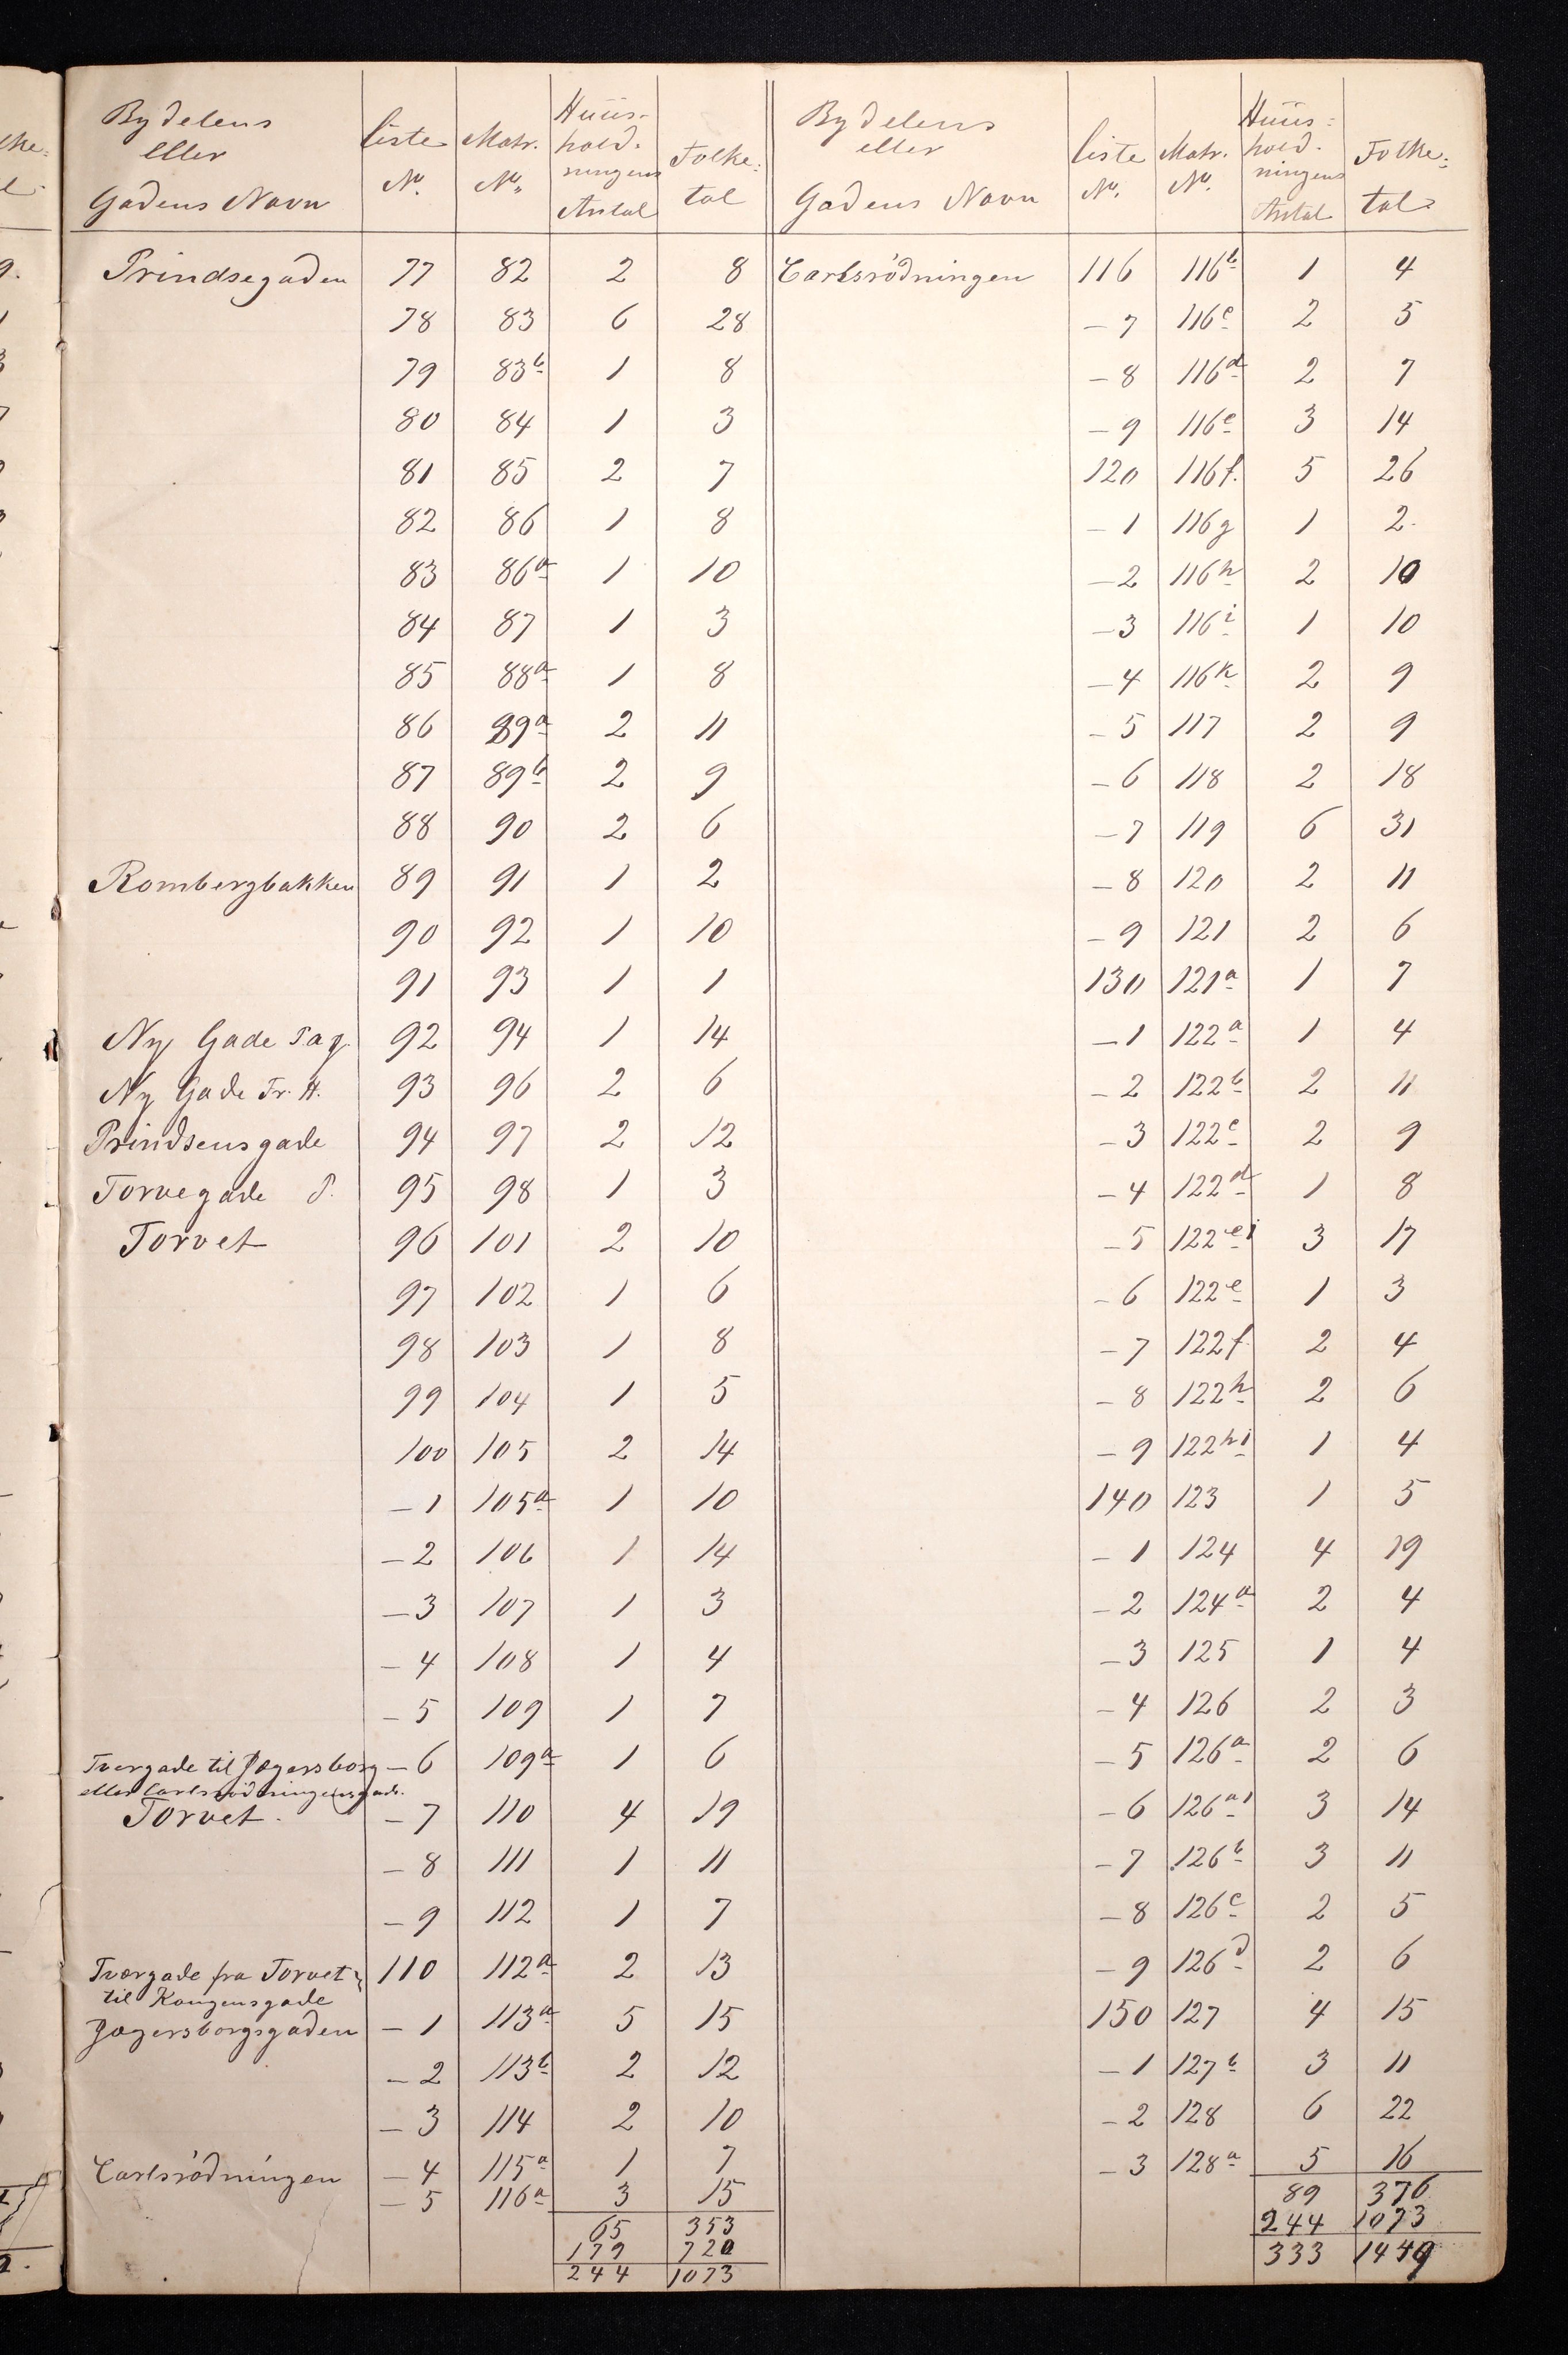 Bydelens eller Gadens Navn | Liste No. | Matr. No. | Huus-hold-ningens Antal | Folke-tal
Prindsegaden 77 82 2 8
78 83 6 28
79 83b 1 8
80 84 1 3
81 85 2 7
82 86 1 8
83 86a 1 10
84 87 1 3
85 88a 1 8
86 89a 2 11
87 89b 2 9
88 90 2 6
Rombergbakken 89 91 1 2
90 92 1 10
91 93 1 1
Ny Gade 92 94 1 14
Ny Gade Fr. H. 93 96 2 6
Prindsensgade 94 97 2 12
Torvegade P. 95 98 1 3
Torvet 96 101 2 10
97 102 1 6
98 103 1 8
99 104 1 5
100 105 2 14
-1 105a 1 10
-2 106 1 14
-3 107 1 3
-4 108 1 4
-5 109 1 7
Tvergade til Jægersborg -6 109a 1 6
eller Carlsrödningensgade.
Torvet. -7 110 4 19
-8 111 1 11
-9 112 1 7
Tværgade fra Torvet 110 112a 2 13
til Kongensgade
Jægersborgsgaden -1 113a 5 15
-2 113b 2 12
-3 114 2 10
Carlsrödningen -4 115a 1 7
-5 116a 3 15
65 353
179 720
244 1073
Bydelens eller Gadens Navn | Liste No. | Matr. No. | Huus-hold-ningens Antal | Folke-tal
Carlsrödningen 116 116b 1 4
-7 116c 2 5
-8 116d 2 7
-9 116e 3 14
120 116f. 5 26
-1 116g 1 2.
-2 116h 2 10
-3 116i 1 10
-4 116k 2 9
-5 117 2 9
-6 118 2 18
-7 119 6 31
-8 120 2 11
-9 121 2 6
130 121a 1 7
-1 122a 1 4
-2 122b 2 11
-3 122c 2 9
-4 122d 1 8
-5 122e1 3 17
-6 122e 1 3
-7 122f 2 4
-8 122h 2 6
-9 122h1 1 4
140 123 1 5
-1 124 4 19
-2 124a 2 4
-3 125 1 4
-4 126 2 3
-5 126a 2 6
-6 126a1 3 14
-7 126b 3 11
-8 126c 2 5
-9 126d 2 6
150 127 4 15
-1 127b 3 11
-2 128 6 22
-3 128a 5 16
89 376
244 1073
333 1449